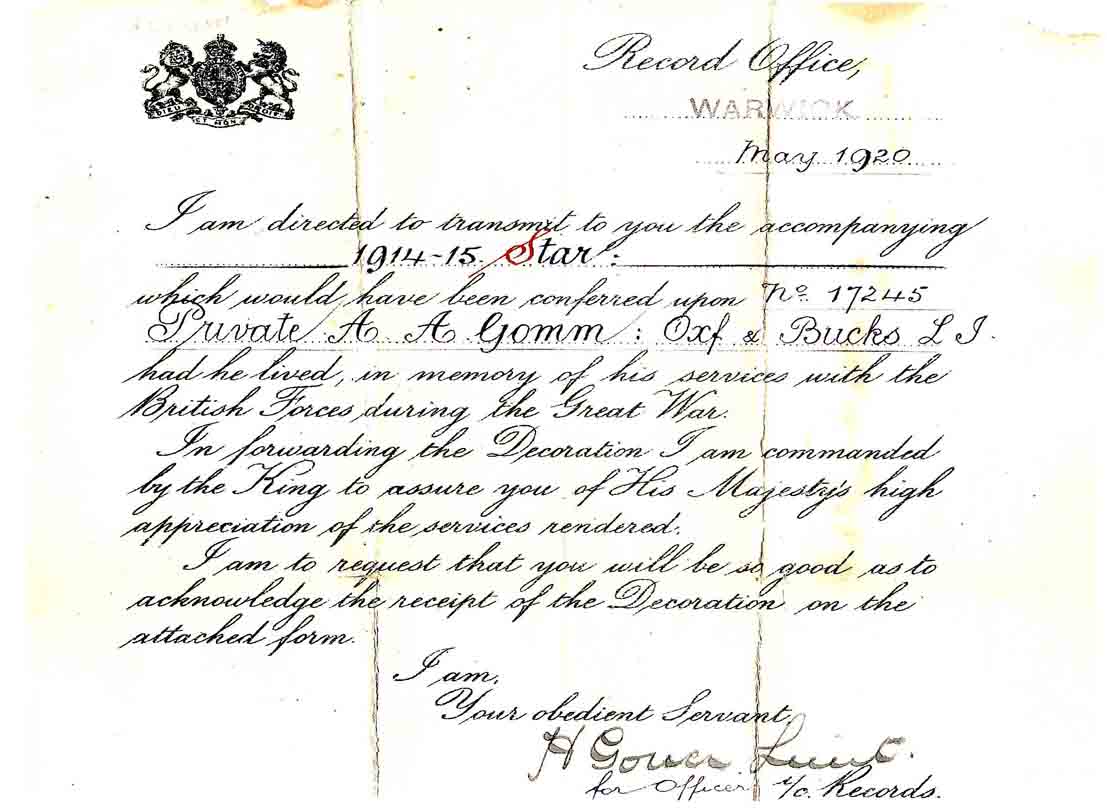 DIEU ET MON DROIT
Record Office,
WARWICK
May 1920
I am directed to transmit to you the accompanying
1914-15. Star:
which would have been conferred upon No. 17245
Private A A Gomm: Oxf & Bucks L I.
had he lived, in memory of his services with the
British Forces during the Great War.
In forwarding the Decoration I am commanded
by the King to assure you of His Majesty's high
appreciation of the services rendered.
I am to request that you will be so good as to
acknowledge the receipt of the Decoration on the
attached form.
I am,
Your obedient Servant,
H Lieut.
for Officer i/c. Records.